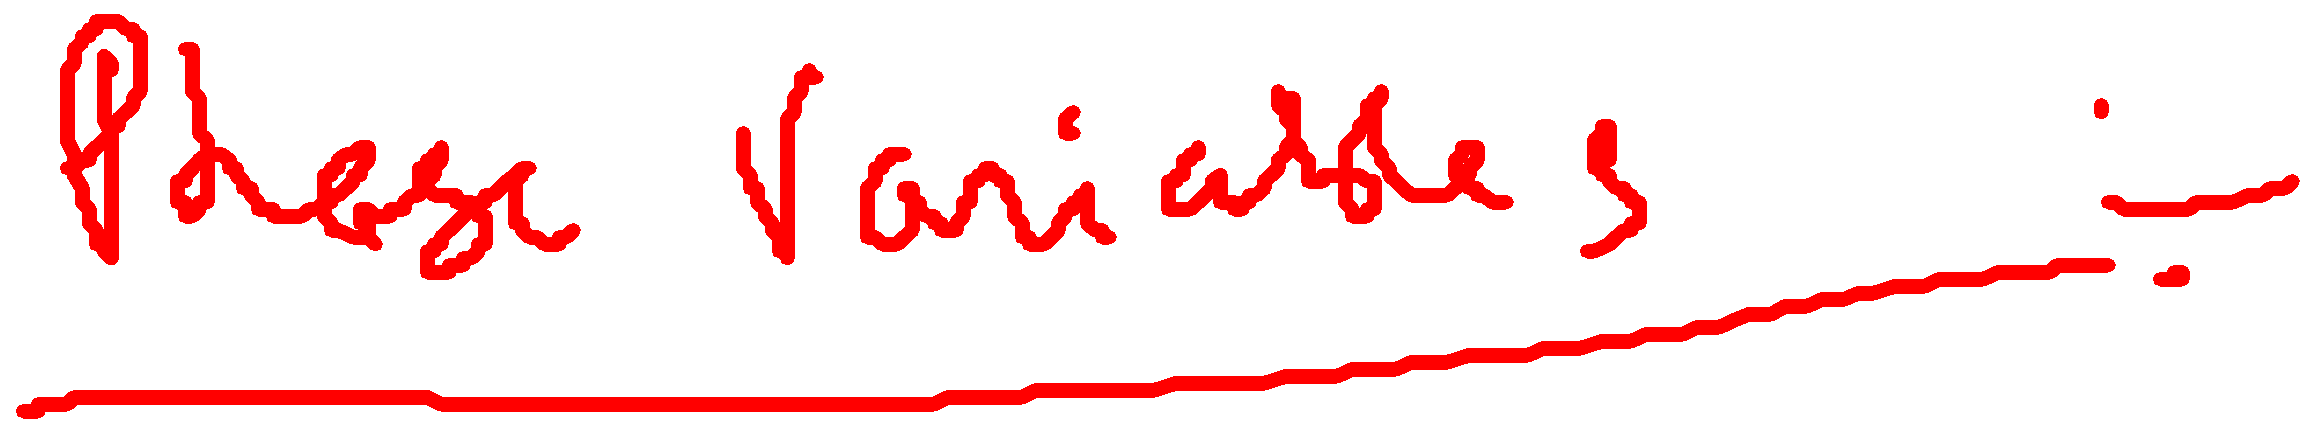 Phase Variables :-